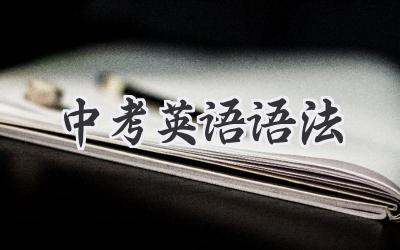 中考英语语法